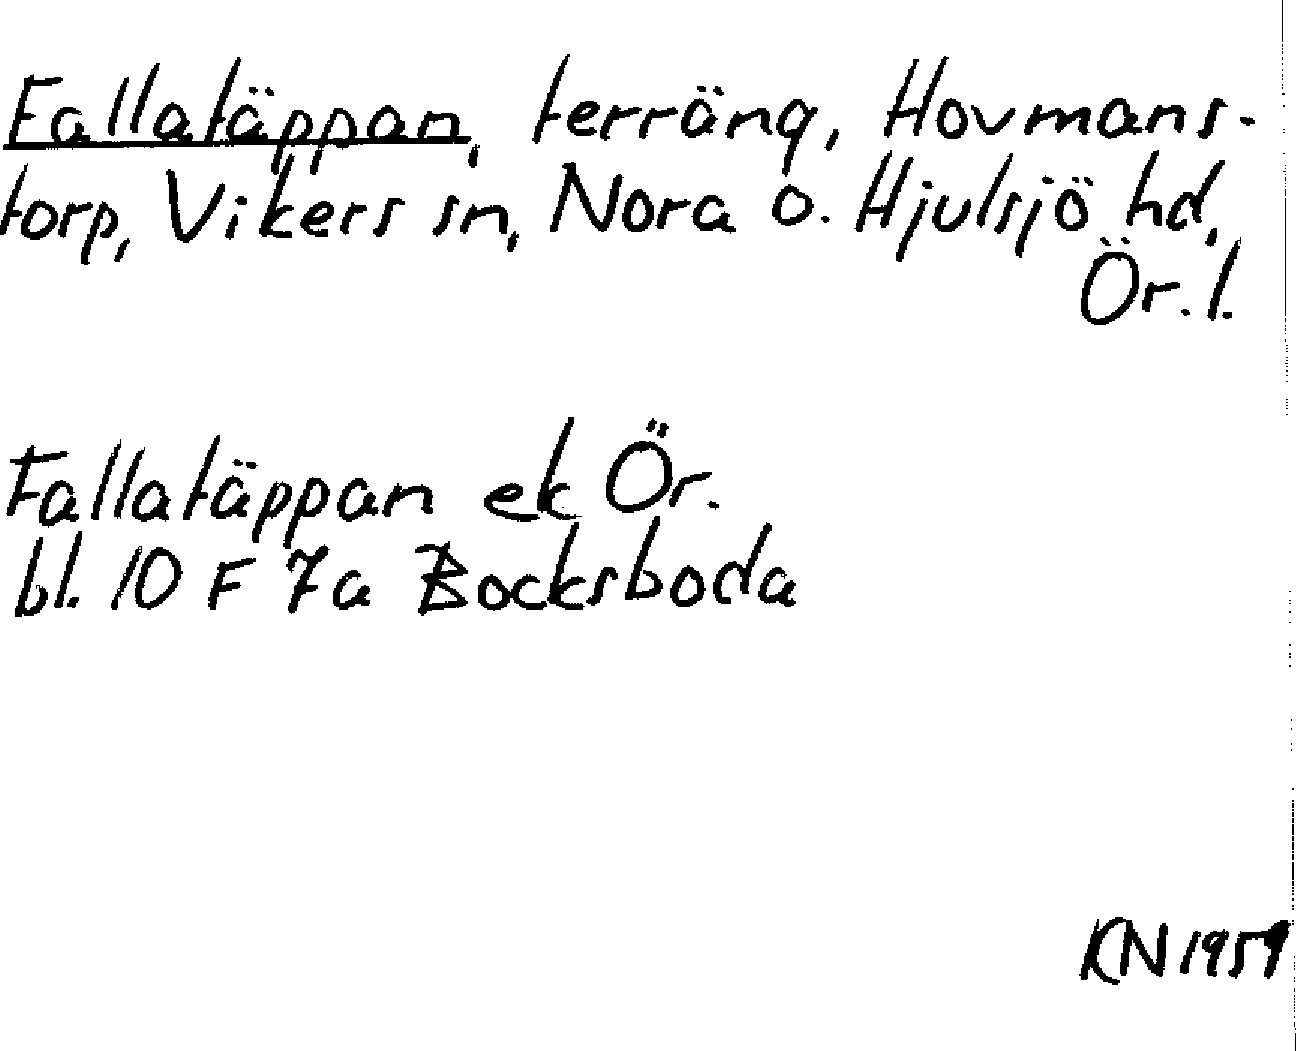 Fallatäppan, terräng, Hovmans-
torp, Vikers sn, Nora o. Hjulsjö hd,
Ör. l.
Fallatäppan ek Ör.
bl. 10 F 7a Bocksboda
KN 1959